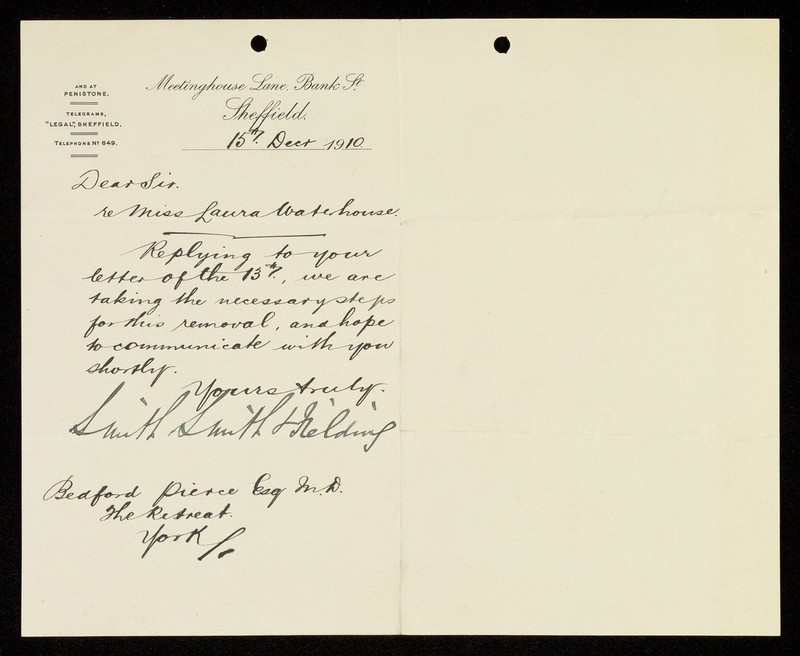 AND AT
PENISTONE.
TELEGRAMS,
"LEGAL", SHEFFIELD.
TELEPHONE Nº 649.
Meetinghouse Lane, Bank St.
Sheffield.
15th. Decr 1910.
Dear Sir.
re Miss Laura Waterhouse.
Replying to your
letter of the 13th., we are
taking the necessary steps
for this removal, and hope
to communicate with you
shortly.
Yours truly.
Smith Smith & Fielding
Bedford Pierce Esq M.D.
The Retreat.
York